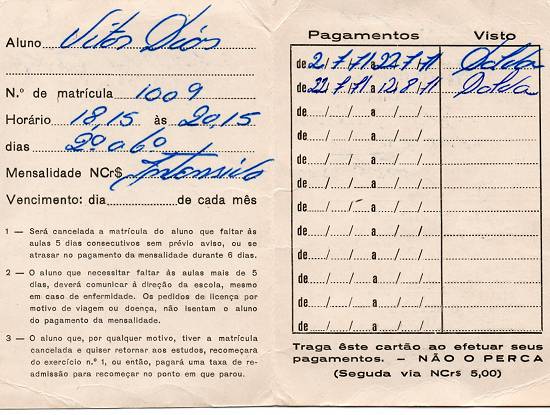 Aluno Vitor Dias
N.º de matrícula 1009
Horário 18,15 às 20,15
dias 2º a 6º
Mensalidade NCr$ Intensivo
Vencimento: dia de cada mês
1 — Será cancelada a matrícula do aluno que faltar às
aulas 5 dias consecutivos sem prévio aviso, ou se
atrasar no pagamento da mensalidade durante 6 dias.
2 — O aluno que necessitar faltar às aulas mais de 5
dias, deverá comunicar à direção da escola, mesmo
em caso de enfermidade. Os pedidos de licença por
motivo de viagem ou doença, não isentam o aluno
do pagamento da mensalidade.
3 — O aluno que, por qualquer motivo, tiver a matrícula
cancelada e quiser retornar aos estudos, recomeçará
do exercício n.º 1, ou então, pagará uma taxa de re-
admissão para recomeçar no ponto em que parou.
Pagamentos Visto
de 2/7/71 a 22/7/71
de 22/7/71 a 12/8/71
de / / a / /
de / / a / /
de / / a / /
de / / a / /
de / / a / /
de / / a / /
de / / a / /
de / / a / /
de / / a / /
de / / a / /
Traga êste cartão ao efetuar seus
pagamentos. — NÃO O PERCA
(Seguda via NCr$ 5,00)